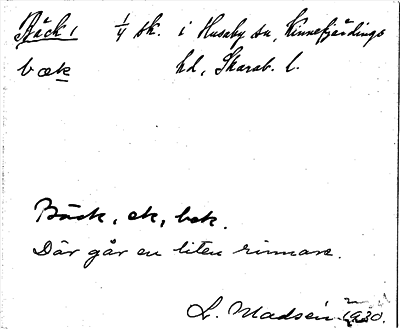 Bäck, 1/4 sk. i Husaby sn, Kinnefjärdings
bæk hd, Skarab. l.
Bäck, ek, bek.
Där går en liten rinnare.
L. Madsén 1930.